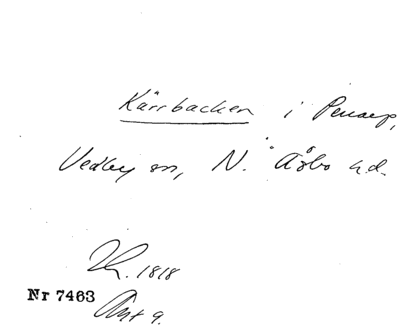 Kärrbacken i Perstorp,
Vedby sn, N. Åsbo hd.
1818
Nr 7463
Ant 9.